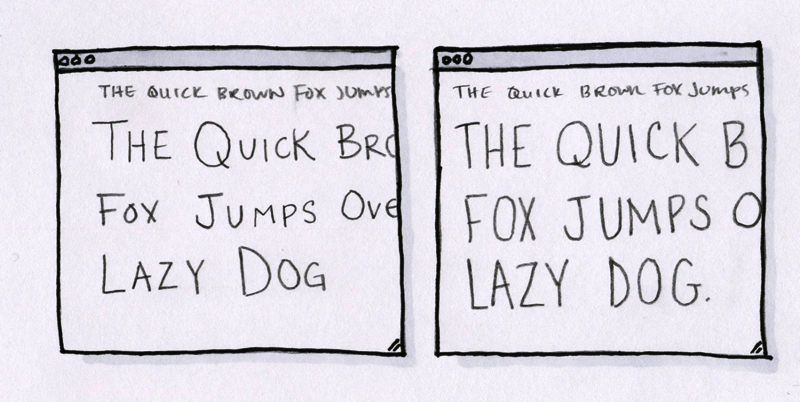 THE QUICK BROWN FOX JUMPS
THE QUICK BRO
FOX JUMPS OVE
LAZY DOG
THE QUICK BROWN FOX JUMPS
THE QUICK B
FOX JUMPS O
LAZY DOG.